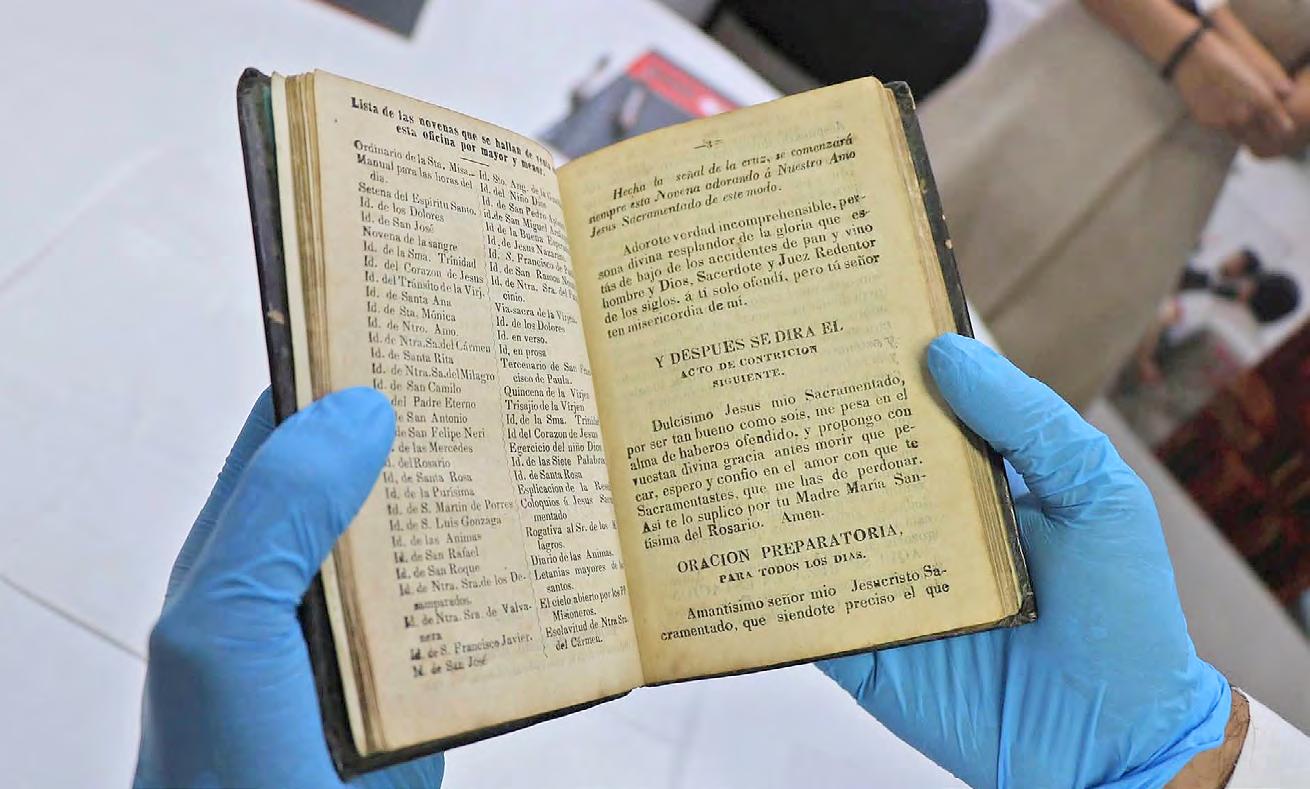 Lista de las novenas que se hallan de
esta oficina por mayor y menor.
Ordinario de la Sta. Misa.
Manual para las horas del
dia.
Setena del Espiritu Santo.
Id. de los Dolores
Id. de San José
Novena de la sangre
Id. de la Sma. Trinidad
Id. del Corazon de Jesus
Id. del Tránsito de la Virj.
Id. de Santa Ana
Id. de Sta. Mónica
Id. de Ntro. Amo.
Id. de Ntra.Sa.del Cármen
Id. de Santa Rita
Id. de Ntra.Sa.del Milagro
Id. de San Camilo
del Padre Eterno
de San Antonio
de San Felipe Neri
de las Mercedes
Id. del Rosario
Id. de Santa Rosa
Id. de la Purísima
Id. de S. Martin de Porres
Id. de S. Luis Gonzaga
Id. de las Animas
Id. de San Rafael
Id. de San Roque
Id. de Ntra. Sra. de los De-
samparados.
Id. de Ntra. Sra. de Valva-
nera
Id. de S. Francisco Javier.
Id. de San José
Id. Sto. Ang. de la
Id. del Niño Dios
Id. de San Pedro
Id. de San Miguel
Id. de la Buena
Id. de Jesus Nazareno
Id. S. Francisco de
Id. de San Ramon
Id. de Ntra. Sra. del
cinio.
Via-sacra de la Virjen.
Id. de los Dolores
Id. en verso.
Id. en prosa
Tercenario de San
cisco de Paula.
Quincena de la Virjen
Trisajio de la Virjen
Id. de la Sma. Trinidad
Id del Corazon de Jesus
Egercicio del niño Dios
Id. de las Siete Palabra
Id. de Santa Rosa
Esplicacion de la
Coloquios á Jesus
mentado
Rogativa al Sr. de los
lagros.
Diario de las Animas.
Letanias mayores de
santos.
El cielo abierto por los PP
Misioneros.
Esclavitud de Ntra Sra.
del Cármen.
—3=
Hecha la señal de la cruz, se comenzará
siempre esta Novena adorando á Nuestro Amo
Jesus Sacramentado de este modo.
Adorote verdad incomprehensible, per-
sona divina resplandor de la gloria que es-
tás de bajo de los accidentes de pan y vino
hombre y Dios, Sacerdote y Juez Redentor
de los siglos. á tí solo ofendí, pero tú señor
ten misericordia de mí.
Y DESPUES SE DIRA EL
ACTO DE CONTRICION
SIGUIENTE.
Dulcísimo Jesus mio Sacramentado,
por ser tan bueno como sois, me pesa en el
alma de haberos ofendido, y propongo con
vuestan divina gracia antes morir que pe-
car, espero y confio en el amor con que te
Sacramentastes, que me has de perdonar.
Asi te lo suplico por tu Madre María San-
tísima del Rosario. Amen.
ORACION PREPARATORIA,
PARA TODOS LOS DIAS.
Amantísimo señor mio Jesucristo Sa-
cramentado, que siendote preciso el que